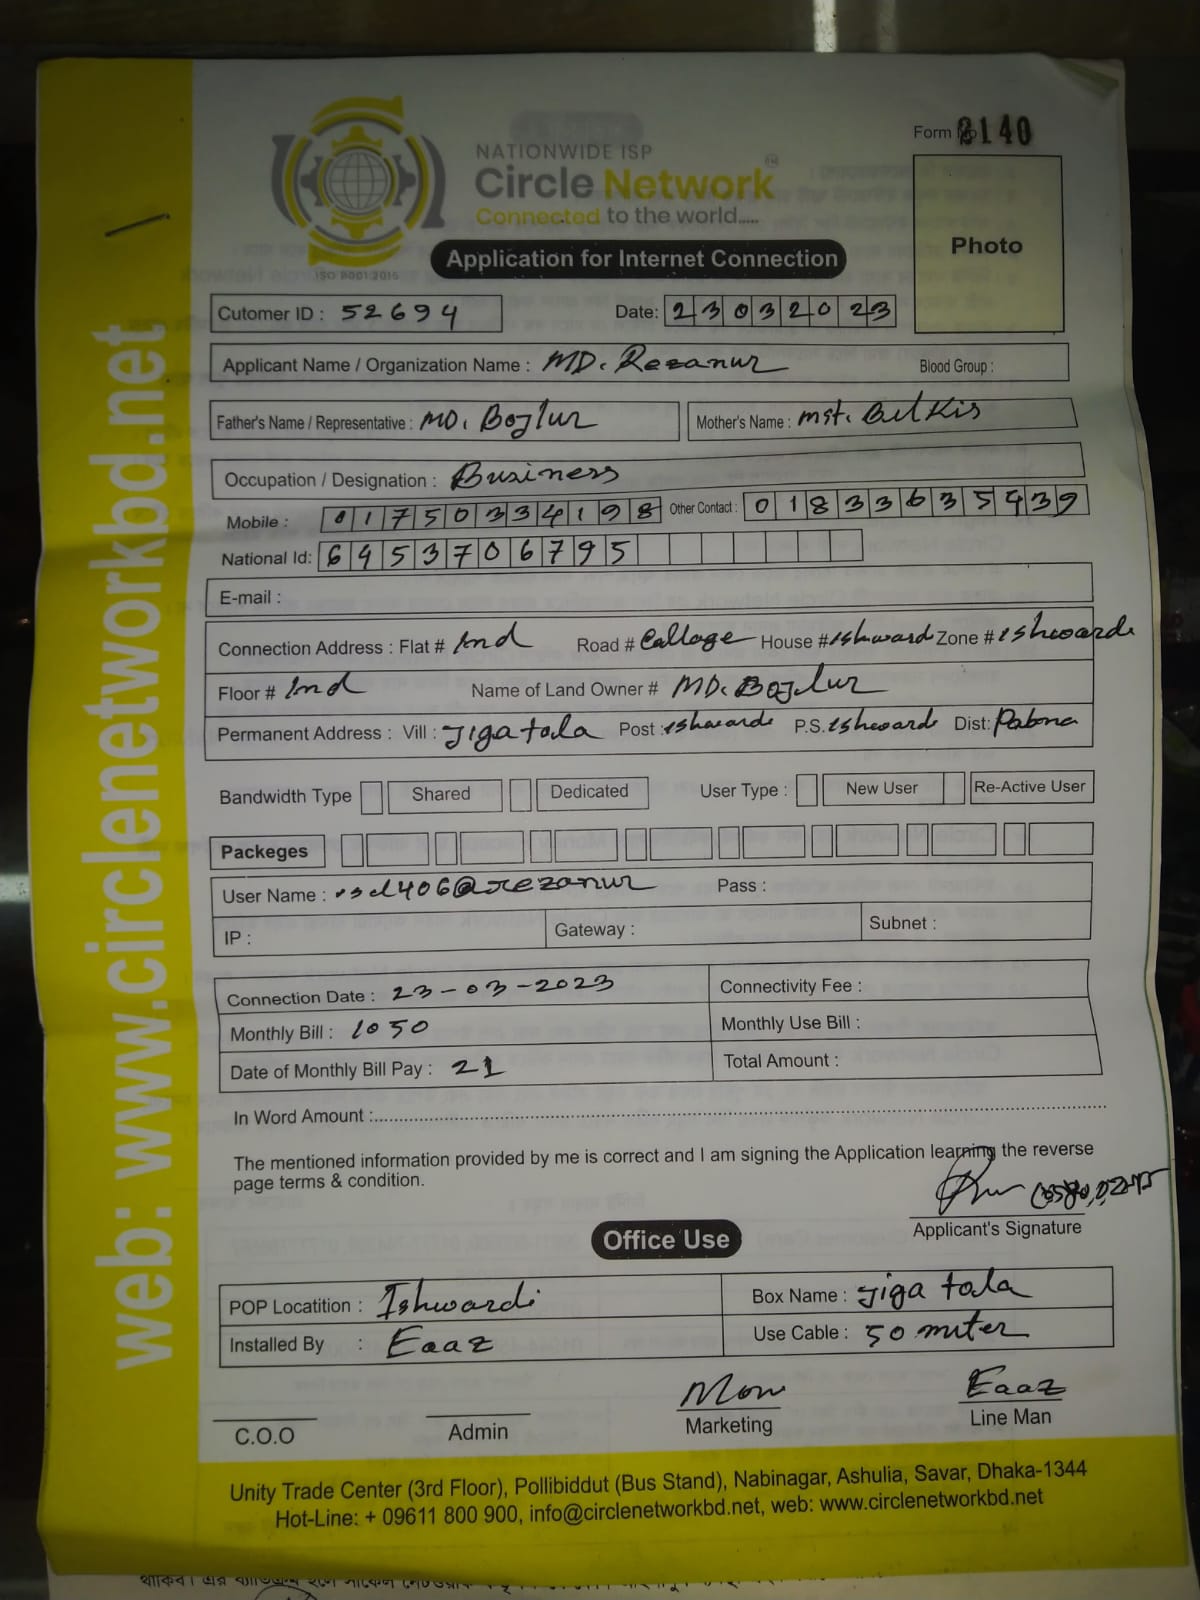 Form No 3140
NATIONWIDE ISP
Circle Network
Connected to the world.....
ISO 9001:2015
Photo
Application for Internet Connection
Cutomer ID : 52694 Date: 23032023
Applicant Name / Organization Name : MD. Rezanur Blood Group :
Father's Name / Representative : MD. Bojlur Mother's Name : mst. Bulkis
Occupation / Designation : Business
Mobile : 01750334198 Other Contact : 01833635939
National Id: 6453706795
E-mail :
Connection Address : Flat # Ind Road # Callage House # ishward Zone # ishwarde
Floor # Ind Name of Land Owner # MD. Bojlur
Permanent Address : Vill : Jigatola Post : ishwarde P.S. ishwarde Dist: Pabna
Bandwidth Type Shared Dedicated User Type : New User Re-Active User
Packeges
User Name : isd406@rezanur Pass :
IP : Gateway : Subnet :
Connection Date : 23-03-2023 Connectivity Fee :
Monthly Bill : 1050 Monthly Use Bill :
Date of Monthly Bill Pay : 21 Total Amount :
In Word Amount :
The mentioned information provided by me is correct and I am signing the Application learning the reverse
page terms & condition.
Applicant's Signature
Office Use
POP Locatition : Ishwardi Box Name : Jiga tola
Installed By : Eaaz Use Cable : 50 miter
Mon Eaaz
C.O.O Admin Marketing Line Man
Unity Trade Center (3rd Floor), Pollibiddut (Bus Stand), Nabinagar, Ashulia, Savar, Dhaka-1344
Hot-Line: + 09611 800 900, info@circlenetworkbd.net, web: www.circlenetworkbd.net
web: www.circlenetworkbd.net